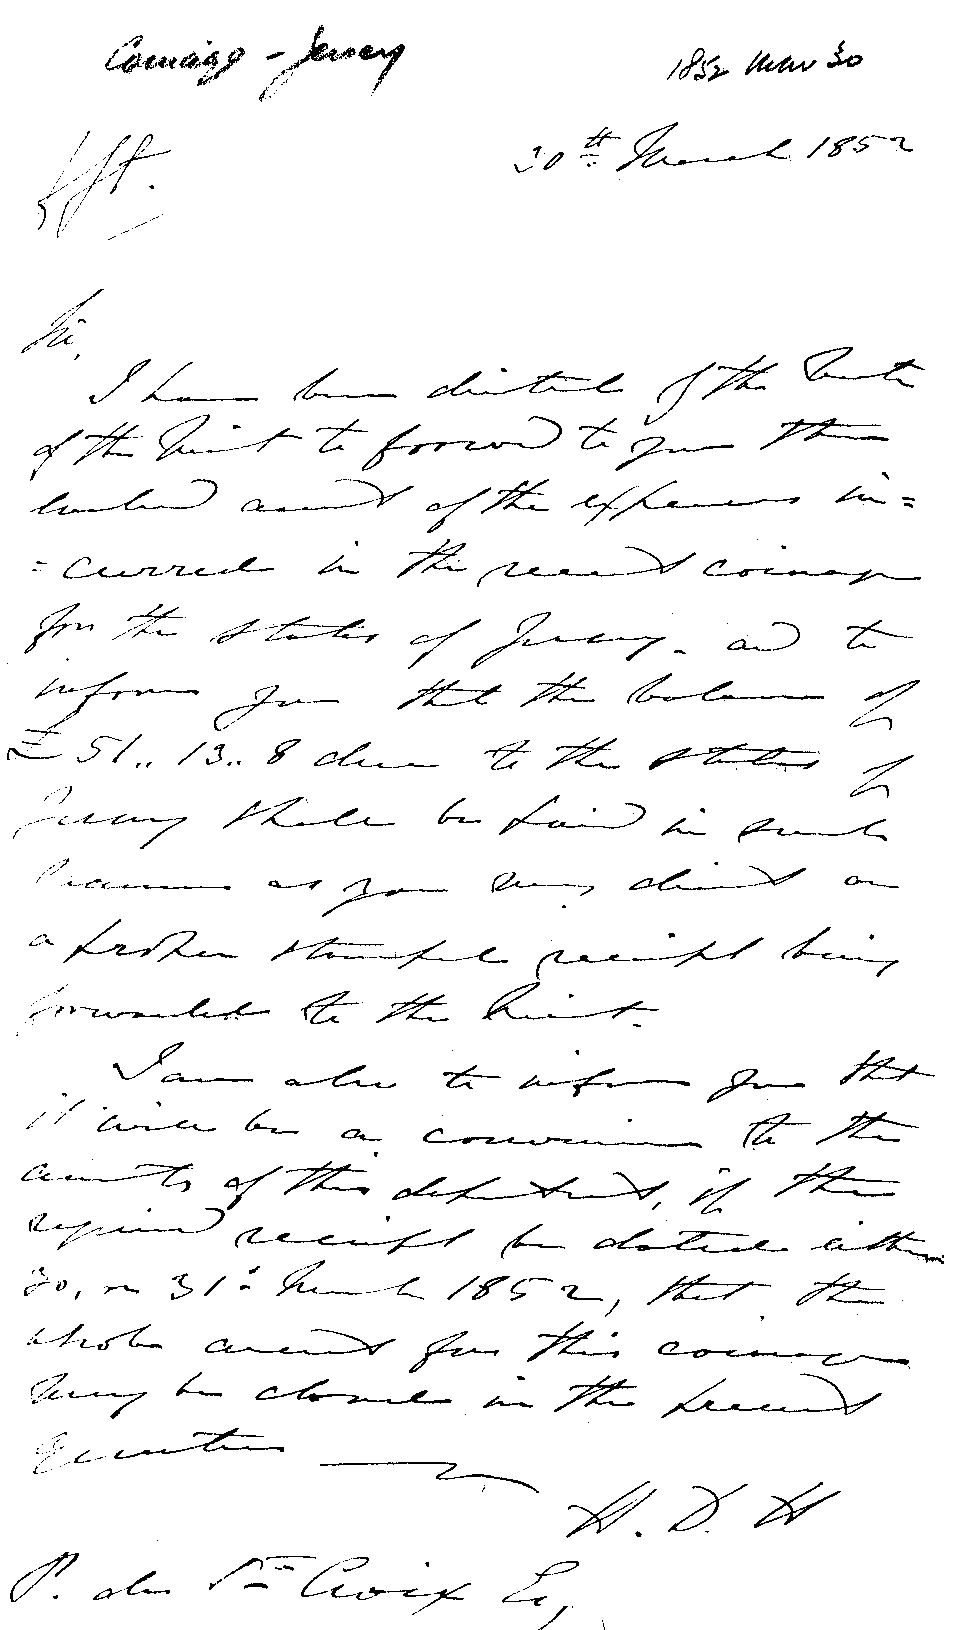 Coinage - Jersey 1852 Mar 30
30th March 1852
Sir,
I have been directed by the Master
of the Mint to forward to you the
enclosed account of the expenses in=
=curred in the recent coinage
for the States of Jersey - and to
inform you that the balance of
£51..13..8 due to the States of
Jersey shall be paid in such
manner as you may direct on
a proper stamped receipt being
forwarded to the Mint.
I am also to inform you that
it will be a convenience to the
accounts of this department, if the
required receipt be dated either
30, or 31st March 1852, that the
whole account for this coinage
may be closed in the present
Quarter
H. D. H
P. de Ste Croix Esq,